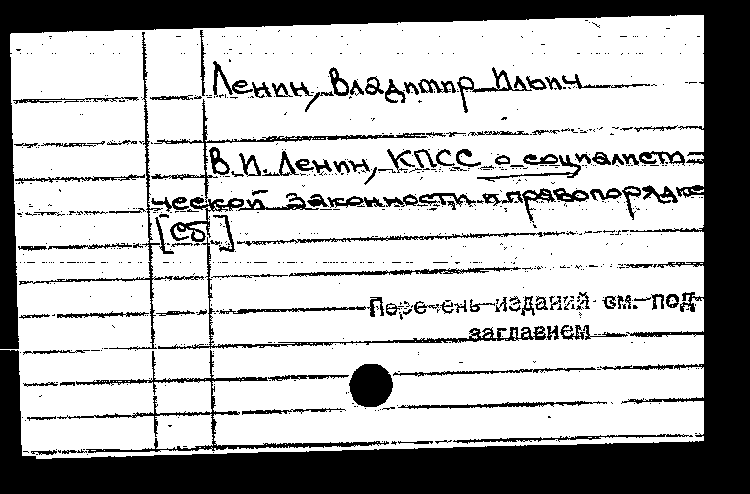 Ленин, Владимир Ильич
В.И. Ленин, КПСС о социалисти-
ческой законности и правопорядке
[Сб.]
Перечень изданий см. под
заглавием